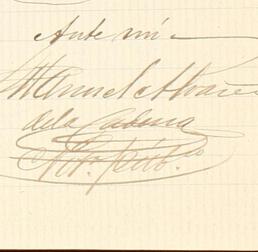 Ante mi
Manuel Alvarez
de la Cadena
Not. púb.